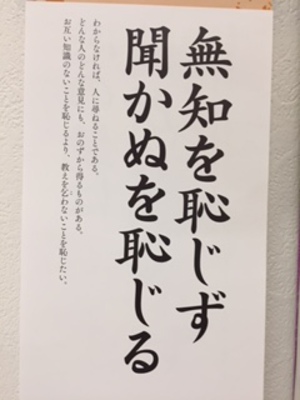 無知を恥じず
聞かぬを恥じる
わからなければ、人に尋ねることである。
どんな人のどんな意見にも、おのずから得るものがある。
お互い知識のないことを恥じるより、教えを乞わないことを恥じたい。